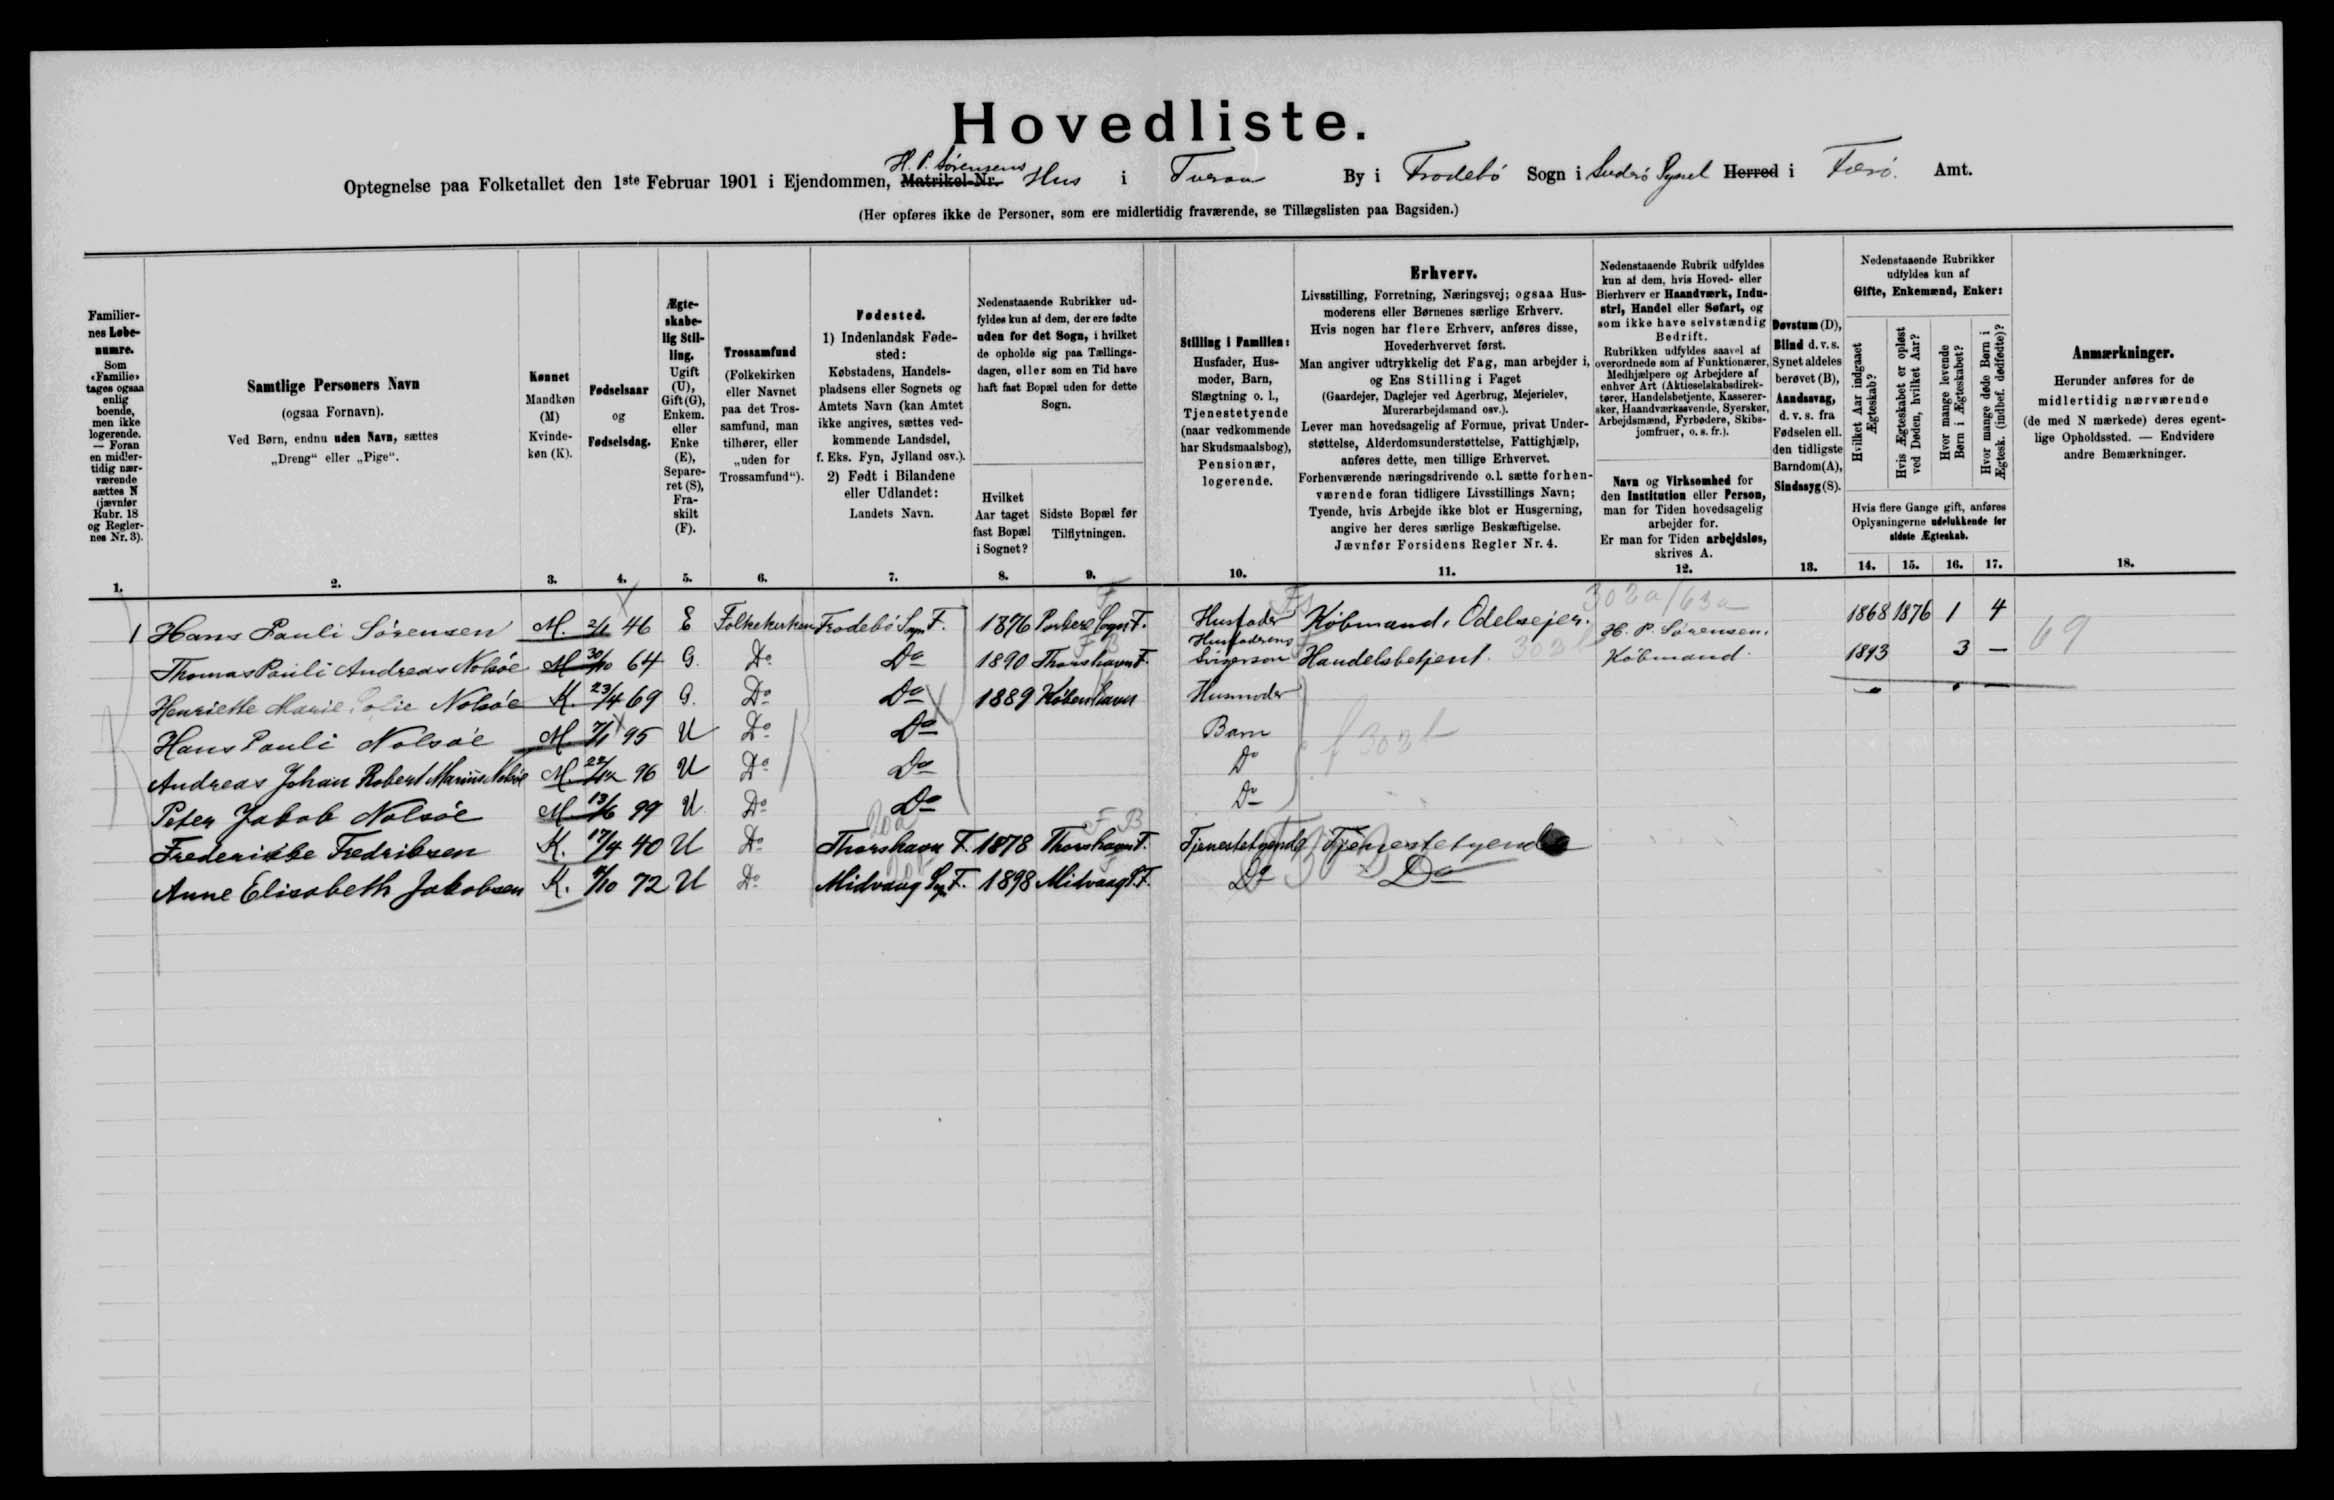 Hovedliste.
Optegnelse paa Folketallet den 1ste Februar 1901 i Ejendommen, Matrikel-Nr. H. P. Sørensens Hus i Tveraa By i Frodebø Sogn i Suderø Syssel Herred i Færø. Amt.
(Her opføres ikke de Personer, som ere midlertidig fraværende, se Tillægslisten paa Bagsiden.)
Familier-
nes Løbe-
numre.
Som
«Familie»
tages ogsaa
enlig
boende,
men ikke
logerende.
— Foran
en midler-
tidig nær-
værende
sættes N
(jævnfør
Rubr. 18
og Regler-
nes Nr. 3).
1.
Samtlige Personers Navn
(ogsaa Fornavn).
Ved Børn, endnu uden Navn, sættes
„Dreng“ eller „Pige“.
2.
Kønnet
Mandkøn
(M)
Kvinde-
køn (K).
3.
Fødselsaar
og
Fødselsdag.
4.
Ægte-
skabe-
lig Stil-
ling.
Ugift
(U),
Gift (G),
Enkem.
eller
Enke
(E),
Separe-
ret (S),
Fra-
skilt
(F).
5.
Trossamfund
(Folkekirken
eller Navnet
paa det Tros-
samfund, man
tilhører, eller
„uden for
Trossamfund“).
6.
Fødested.
1) Indenlandsk Føde-
sted:
Købstadens, Handels-
pladsens eller Sognets og
Amtets Navn (kan Amtet
ikke angives, sættes ved-
kommende Landsdel,
f. Eks. Fyn, Jylland osv.).
2) Født i Bilandene
eller Udlandet:
Landets Navn.
7.
Nedenstaaende Rubrikker ud-
fyldes kun af dem, der ere fødte
uden for det Sogn, i hvilket
de opholde sig paa Tællings-
dagen, eller som en Tid have
haft fast Bopæl uden for dette
Sogn.
Hvilket
Aar taget
fast Bopæl
i Sognet?
8.
Sidste Bopæl før
Tilflytningen.
9.
Stilling i Familien:
Husfader, Hus-
moder, Barn,
Slægtning o. l.,
Tjenestetyende
(naar vedkommende
har Skudsmaalsbog),
Pensionær,
logerende.
10.
Erhverv.
Livsstilling, Forretning, Næringsvej; ogsaa Hus-
moderens eller Børnenes særlige Erhverv.
Hvis nogen har flere Erhverv, anføres disse,
Hovederhvervet først.
Man angiver udtrykkelig det Fag, man arbejder i,
og Ens Stilling i Faget
(Gaardejer, Daglejer ved Agerbrug, Mejerielev,
Murerarbejdsmand osv.).
Lever man hovedsagelig af Formue, privat Under-
støttelse, Alderdomsunderstøttelse, Fattighjælp,
anføres dette, men tillige Erhvervet.
Forhenværende næringsdrivende o. l. sætte forhen-
værende foran tidligere Livsstillings Navn;
Tyende, hvis Arbejde ikke blot er Husgerning,
angive her deres særlige Beskæftigelse.
Jævnfør Forsidens Regler Nr. 4.
11.
Nedenstaaende Rubrik udfyldes
kun af dem, hvis Hoved- eller
Bierhverv er Haandværk, Indu-
stri, Handel eller Søfart, og
som ikke have selvstændig
Bedrift.
Rubrikken udfyldes saavel af
overordnede som af Funktionærer,
Medhjælpere og Arbejdere af
enhver Art (Aktieselskabsdirek-
tører, Handelsbetjente, Kasserer-
sker, Haandværkssvende, Syersker,
Arbejdsmænd, Fyrbødere, Skibs-
jomfruer, o. s. fr.).
Navn og Virksomhed for
den Institution eller Person,
man for Tiden hovedsagelig
arbejder for.
Er man for Tiden arbejdsløs,
skrives A.
12.
Døvstum (D),
Blind d. v. s.
Synet aldeles
berøvet (B),
Aandssvag,
d. v. s. fra
Fødselen ell.
den tidligste
Barndom (A),
Sindssyg (S).
13.
Nedenstaaende Rubrikker
udfyldes kun af
Gifte, Enkemænd, Enker:
Hvilket Aar indgaaet
Ægteskab?
Hvis Ægteskabet er opløst
ved Døden, hvilket Aar?
Hvor mange levende
Børn i Ægteskabet?
Hvor mange døde Børn i
Ægtesk. (indbef. dødfødte)?
Hvis flere Gange gift, anføres
Oplysningerne udelukkende for
sidste Ægteskab.
14. 15. 16. 17.
Anmærkninger.
Herunder anføres for de
midlertidig nærværende
(de med N mærkede) deres egent-
lige Opholdssted. — Endvidere
andre Bemærkninger.
18.
302a/63a
1 Hans Pauli Sørensen M. 2/1 46 E Folkekirken Frodebø Sogn F. 1876 Porkere Sogn F. Husfader Købmand, Odelsejer. 1868 1876 1 4
Thomas Pauli Andreas Nolsøe M 30/10 64 G. Do Do 1890 Thorshavn F. Husfaderens Svigersøn Handelsbetjent. H. P. Sørensen, Købmand. 1893 3 — 69
Henriette Marie Nolsøe K. 23/4 69 G. Do Do 1889 København Husmoder
Hans Pauli Nolsøe M. 7/1 95 U Do Do Barn
Andreas Johan Robert Marius Nolsøe M. 22/12 96 U Do Do Do
Peter Jakob Nolsøe M. 13/6 99 U. Do Do Do
Frederikke Fredriksen K. 17/4 40 U Do Thorshavn F. 1878 Thorshavn F. Tjenestetyende Tjenestetyende
Anne Elisabeth Jakobsen K. 72 U Do Midvaag Sogn F. 1898 Midvaag S. F. Do Do